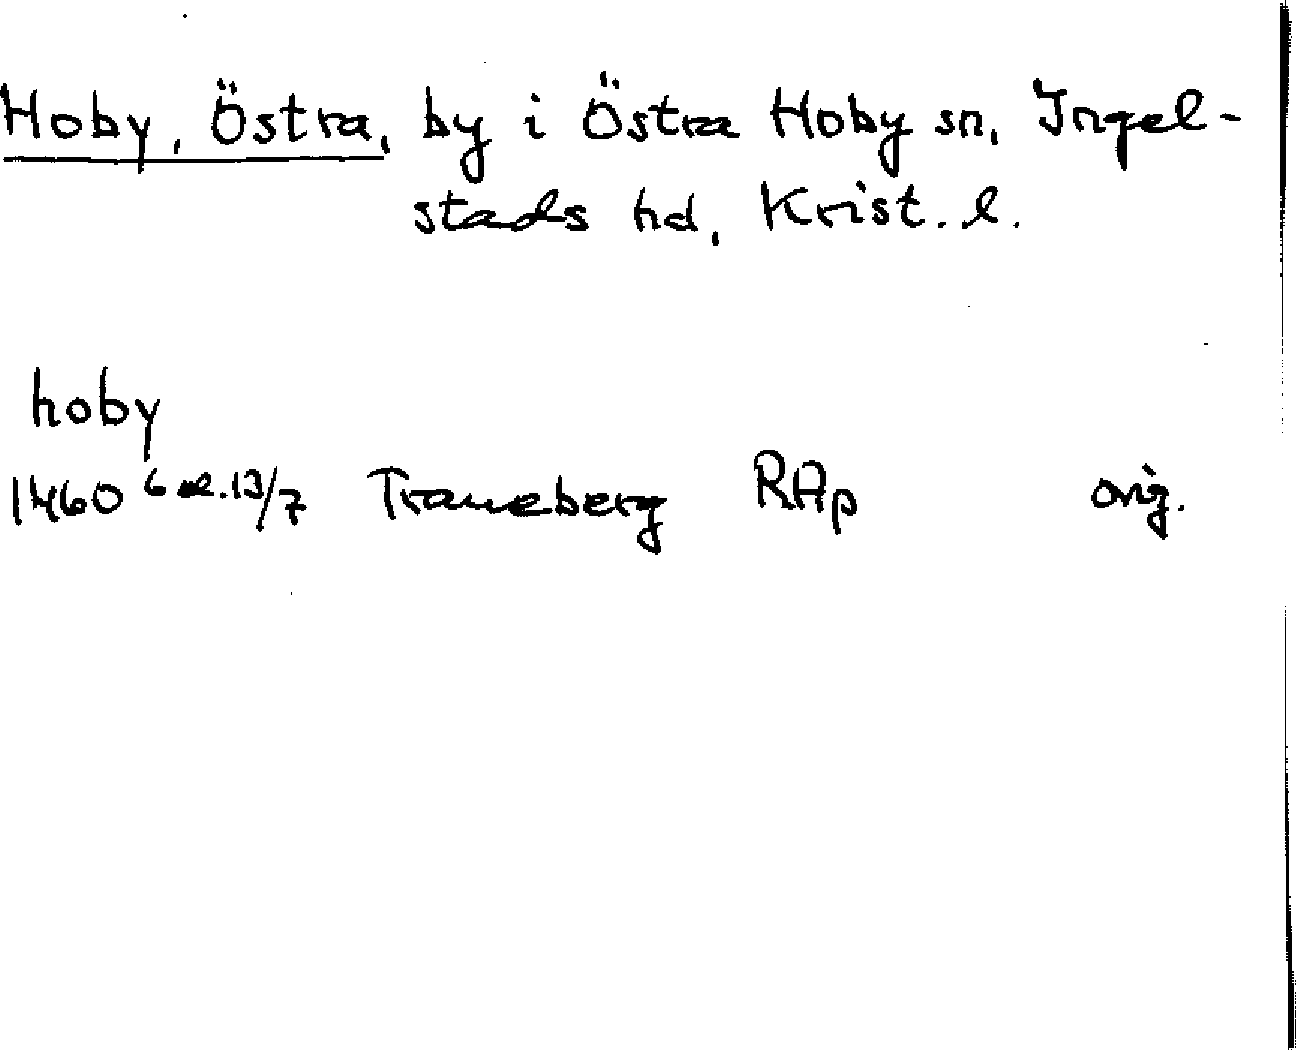 Hoby, Östra, by i Östra Hoby sn, Ingel-
stads hd, Krist. l.
hoby
1460 6 el. 13/7 Traneberg RAp orig.